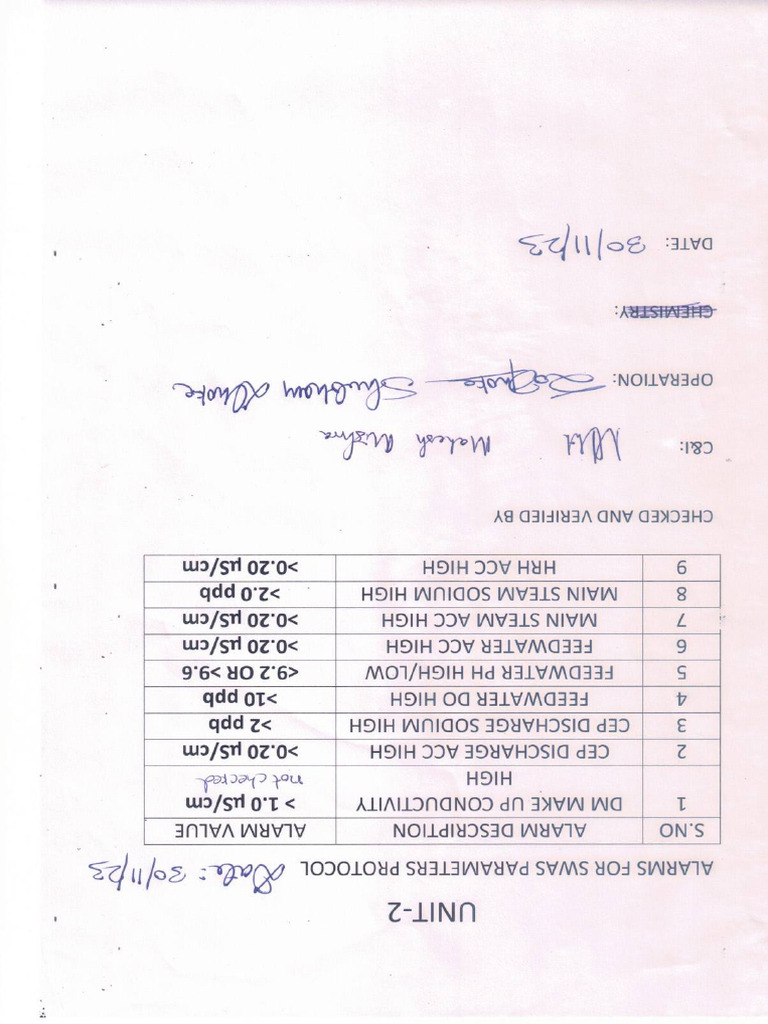 UNIT-2
ALARMS FOR SWAS PARAMETERS PROTOCOL Date: 30/11/23
S.NO ALARM DESCRIPTION ALARM VALUE
1 DM MAKE UP CONDUCTIVITY HIGH > 1.0 µS/cm not checked
2 CEP DISCHARGE ACC HIGH >0.20 µS/cm
3 CEP DISCHARGE SODIUM HIGH >2 ppb
4 FEEDWATER DO HIGH >10 ppb
5 FEEDWATER PH HIGH/LOW <9.2 OR >9.6
6 FEEDWATER ACC HIGH >0.20 µS/cm
7 MAIN STEAM ACC HIGH >0.20 µS/cm
8 MAIN STEAM SODIUM HIGH >2.0 ppb
9 HRH ACC HIGH >0.20 µS/cm
CHECKED AND VERIFIED BY
C&I: Mahesh Mishra
OPERATION: Shubham Dhote
CHEMISTRY:
DATE: 30/11/23